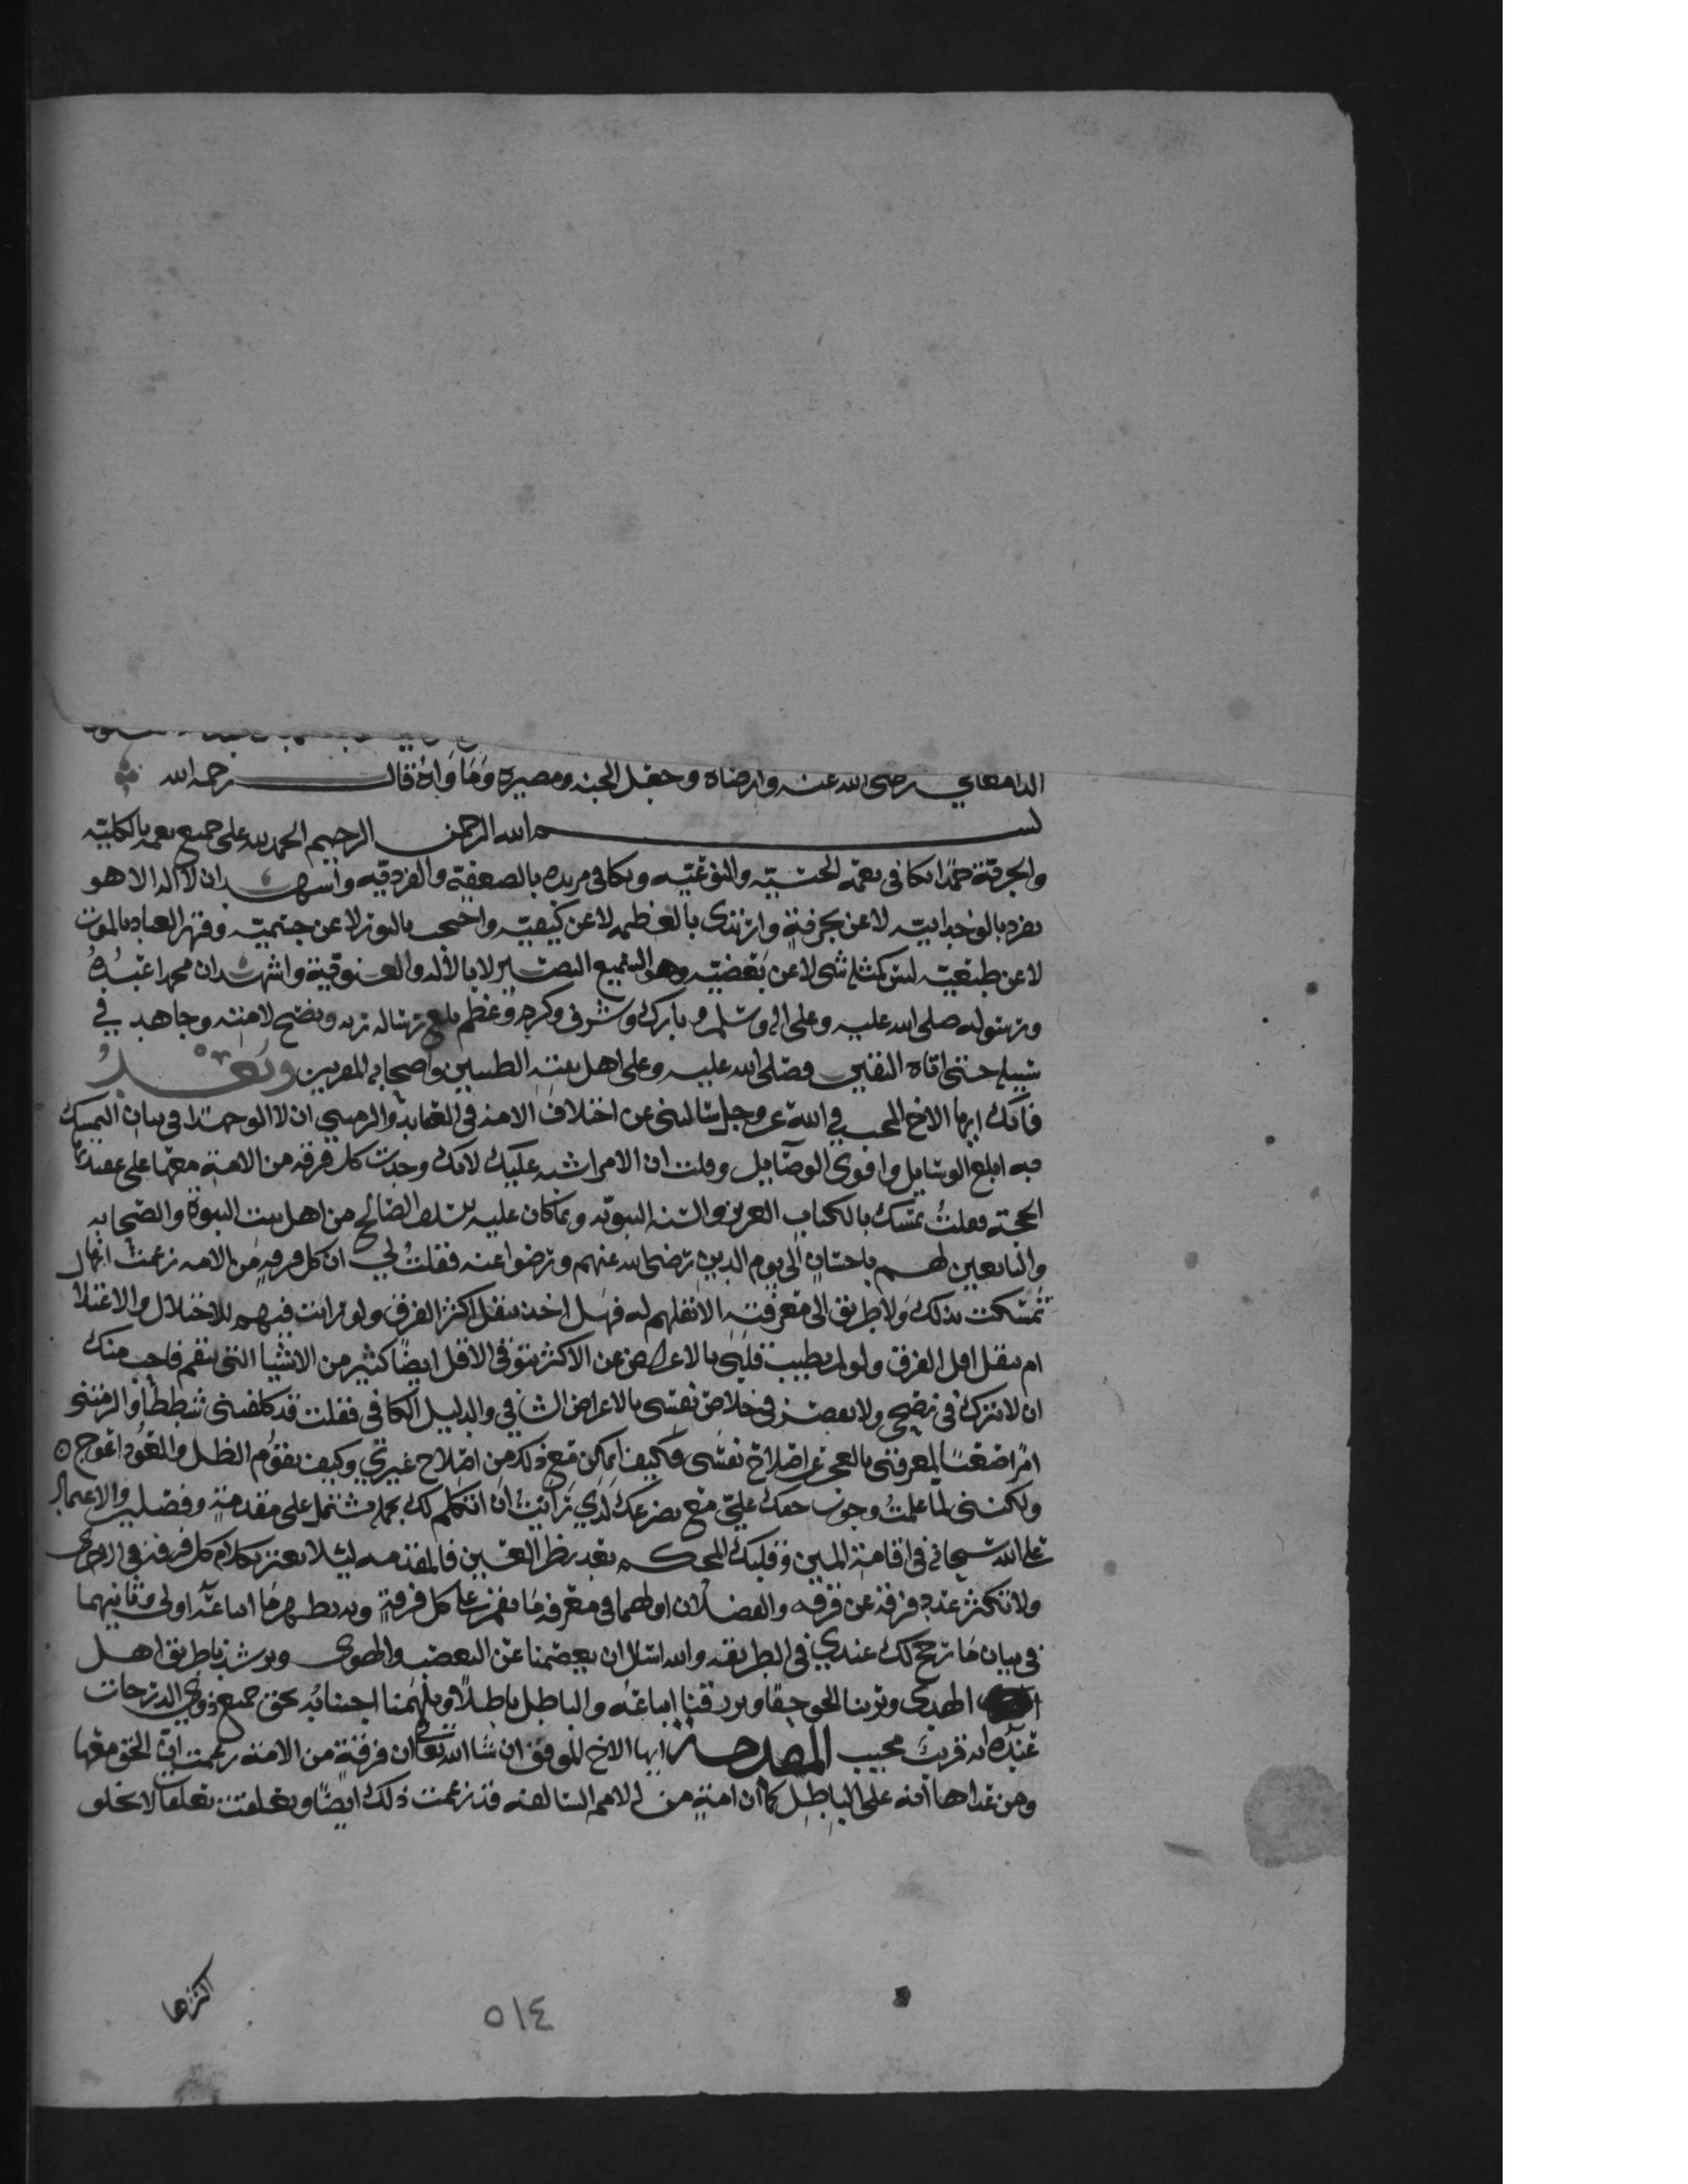 الدامغاني رضي الله عنه وارضاه وجعل الجنة ومصيره وماواه قال رحمه الله
بسم الله الرحمن الرحيم الحمد لله على جميع نعمه الكلية
والجزئية حمدا يكافي نعمه الحسية والنوعية ويكافي مزيده بالصعقية والفردقيه واشهد ان لا اله الا هو
تفرد بالوحدانية لا عن وارتدى بالعظمه لا عن كيفية واحتجب بالنور لا عن جسمية وقهر العباد بالموت
لا عن طبعية ليس كمثله شي لا عن بعضية وهو السميع البصير لا بالآلة والعنوقية واشهد ان محمدا عبده
ورسوله صلى الله عليه وعلى اله وسلم وبارك وشرف وكرم وعظم بلغ رسالة ربه ونصح لامته وجاهد في
سبيله حتى اتاه اليقين فصلى الله عليه وعلى اهل بيته الطيبين واصحابه المقربين وبعد
فانك ايها الاخ المحب في الله عز وجل سالتني عن اختلاف الامة في العقايد والزمتني ان لا الو جهدا في بيان التمسك
فيه ابلغ الوسايل واقوى الوصايل وقلت ان الامر اشتبه عليك لانك وجدت كل فرقة من الامة معها على عقيدتها
الحجة فقلت تمسك بالكتاب العزيز والسنة النبوية وبما كان عليه السلف الصالح من اهل بيت النبوة والصحابه
والتابعين لهم باحسان الى يوم الدين رضي الله عنهم ورضوا عنه فقلت لي ان كل فرقة من الامه زعمت انها
تمسكت بذلك ولا طريق الى معرفته الا نقلهم له فهل اخذ بنقل اكثر الفرق ولو رايت فيهم للاختلال والاعتلال
ام بنقل اقل الفرق ولو لم يطيب قلبي بالاعراض عن الاكثر بتوقي الاقل ايضا كثير من الاشيا التي نقم فاحب منك
ان لا تترك في نصحي ولا تقصر في خلاص نفسي بالاعراض الشافي والدليل الكافي فقلت قد كلفتني شططا والزمتني
امرا صعبا لمعرفتي بالعجز عن اصلاح نفسي فكيف اتمكن مع ذلك من اصلاح غيري وكيف يقوم الظل والعود اعوج ٥
ولكنني لما علمت وجوب حقك علي مع تضرعك لدي رايت ان اتكلم لك بجملة تشتمل على مقدمة وفصلين والاعتماد
على الله سبحانه في اقامة المبين وقلبك المحكم بعد نظر العين فالمقدمه ليلا تغتر بكلام كل فرقة في الاخرى
ولا تتكثر عدد فرقة عن فرقه والفصلان اولهما في معرفة ما نقم على كل فرقة وبه يظهر ما اتباعه اولى وثانيهما
في بيان ما ترجح لك عندي في الطريقه والله اسال ان يعصمنا عن التعصب والهوى ويرشدنا طريق اهل
الهدى ويرينا الحق حقا ويرزقنا اتباعه والباطل باطلا ويلهمنا اجتنابه بحق جميع ذوي الدرجات
عنده انه قريب مجيب المقدمة ايها الاخ الموفق ان شا الله تعالى ان فرقة من الامة زعمت ان الحق معها
ومن عداها انه على الباطل كما ان امة من الامم السالفه قد زعمت ذلك ايضا وتعلقت تعلقا لا يخلو
اكثرها
٥١٤